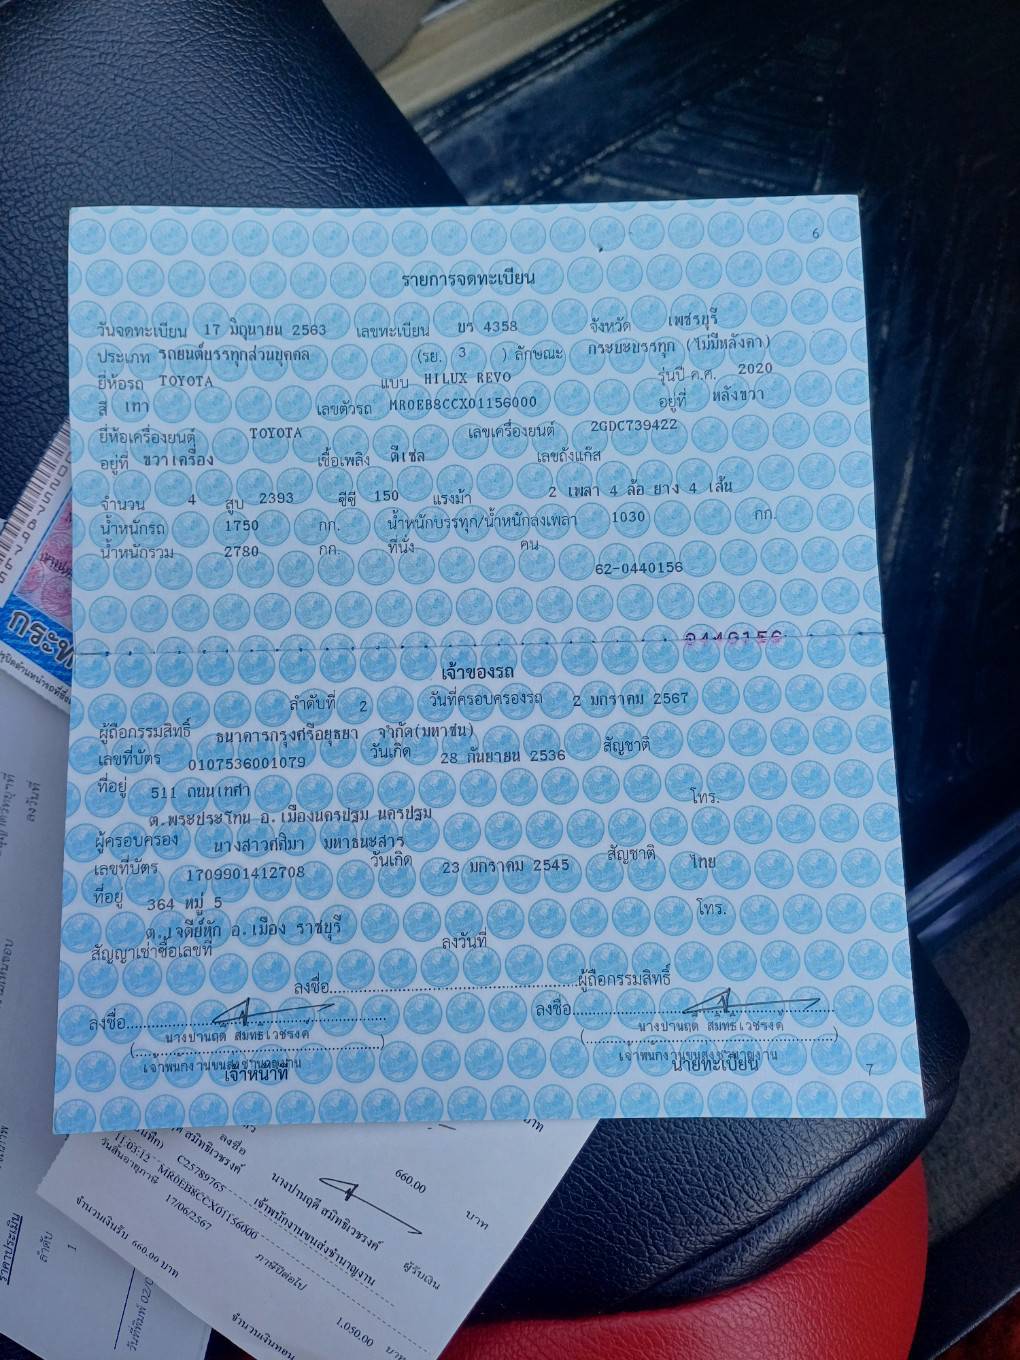 6
รายการจดทะเบียน
วันจดทะเบียน 17 มิถุนายน 2563 เลขทะเบียน บร 4358 จังหวัด เพชรบุรี
ประเภท รถยนต์บรรทุกส่วนบุคคล (รย. 3 ) ลักษณะ กระบะบรรทุก (ไม่มีหลังคา)
ยี่ห้อรถ TOYOTA แบบ HILUX REVO รุ่นปี ค.ศ. 2020
สี เทา เลขตัวรถ MR0EB8CCX01156000 อยู่ที่ หลังขวา
ยี่ห้อเครื่องยนต์ TOYOTA เลขเครื่องยนต์ 2GDC739422
อยู่ที่ ขวาเครื่อง เชื้อเพลิง ดีเซล เลขถังแก๊ส
จำนวน 4 สูบ 2393 ซีซี 150 แรงม้า 2 เพลา 4 ล้อ ยาง 4 เส้น
น้ำหนักรถ 1750 กก. น้ำหนักบรรทุก/น้ำหนักลงเพลา 1030 กก.
น้ำหนักรวม 2780 กก. ที่นั่ง คน
62-0440156
0440156
เจ้าของรถ
ลำดับที่ 2 วันที่ครอบครองรถ 2 มกราคม 2567
ผู้ถือกรรมสิทธิ์ ธนาคารกรุงศรีอยุธยา จำกัด(มหาชน)
เลขที่บัตร 0107536001079 วันเกิด 28 กันยายน 2536 สัญชาติ
ที่อยู่ 511 ถนนเทศา โทร.
ต.พระประโทน อ.เมืองนครปฐม นครปฐม
ผู้ครอบครอง นางสาวศศิมา มหาธนะสาร
เลขที่บัตร 1709901412708 วันเกิด 23 มกราคม 2545 สัญชาติ ไทย
ที่อยู่ 364 หมู่ 5 โทร.
ต.เจดีย์หัก อ.เมือง ราชบุรี
สัญญาเช่าซื้อเลขที่ ลงวันที่
ลงชื่อ ผู้ถือกรรมสิทธิ์
ลงชื่อ ลงชื่อ
นางปานฤดี สมิทธิเวชรงค์ นางปานฤดี สมิทธิเวชรงค์
เจ้าพนักงานขนส่งชำนาญงาน เจ้าพนักงานขนส่งชำนาญงาน
เจ้าหน้าที่ นายทะเบียน
7
ลงชื่อ 660.00 บาท
สมิทธิเวชรงค์ นางปานฤดี สมิทธิเวชรงค์ ผู้รับเงิน
C25789765 เจ้าพนักงานขนส่งชำนาญงาน
11:03:12 MR0EB8CCX01156000
วันสิ้นอายุภาษี 17/06/2567 ภาษีปีต่อไป 1,050.00 บาท
จำนวนเงินรับ 660.00 บาท จำนวนเงินทอน
ราคาประเมิน
ลำดับ
1
ลงวันที่